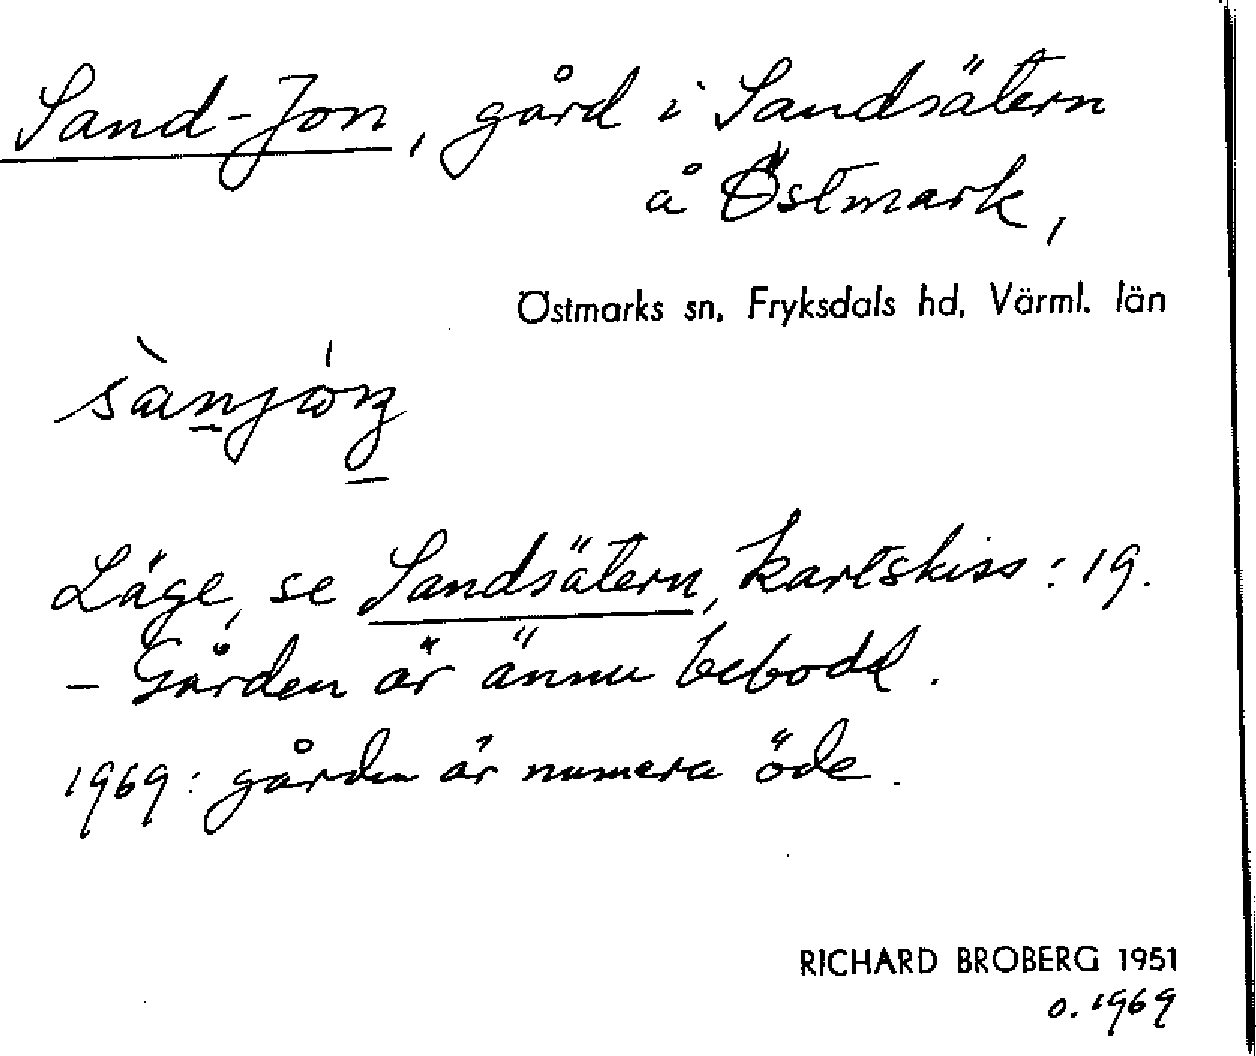 Sand-Jon, gård i Sandsätern
å Östmark,
Östmarks sn, Fryksdals hd, Värml. län
Läge, se Sandsätern, kartskiss: 19.
– Gården är ännu bebodd.
1969: gården är numera öde.
RICHARD BROBERG 1951
o. 1969